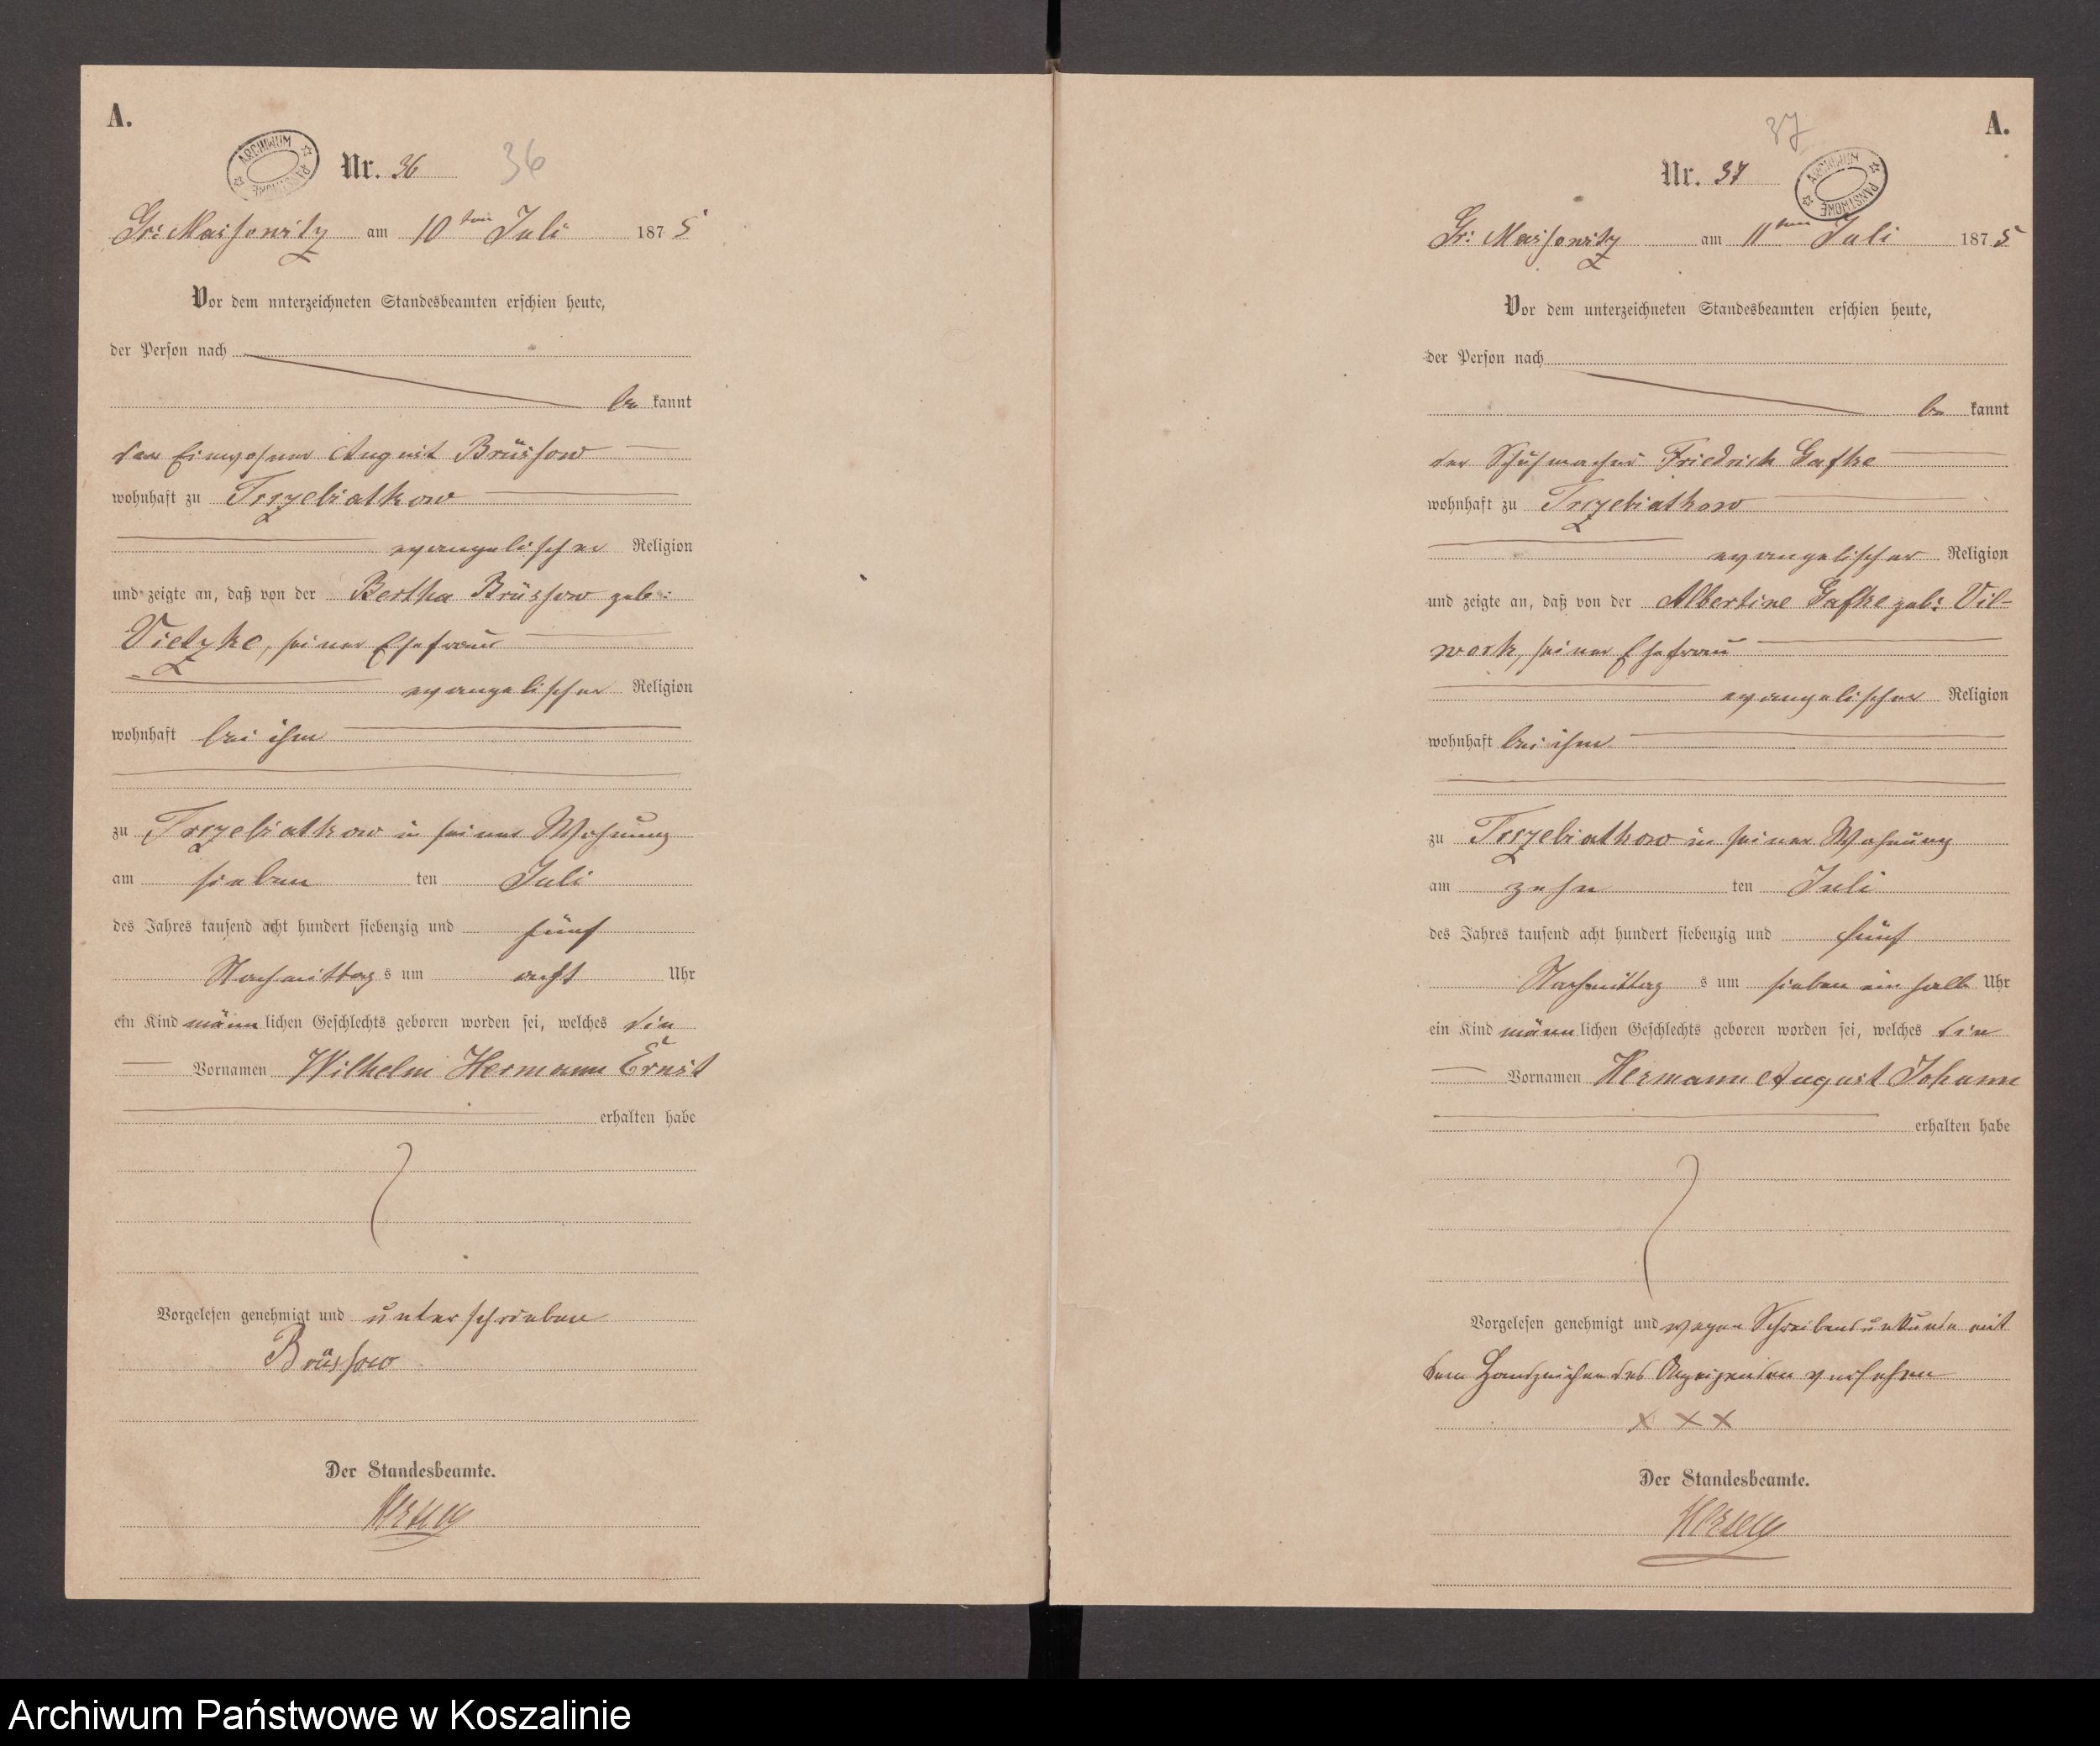 A.
ARCHIWUM PAŃSTWOWE
Nr. 36
36
Gr: Massowitz am 10ten Juli 1875
Vor dem unterzeichneten Standesbeamten erschien heute,
der Person nach
be kannt
der Einwohner August Brüssow
wohnhaft zu Trzebiatkow
evangelischer Religion
und zeigte an, daß von der Bertha Brüssow geb:
Vietzke, seiner Ehefrau
evangelischer Religion
wohnhaft bei ihm
zu Trzebiatkow in seiner Wohnung
am sieben ten Juli
des Jahres tausend acht hundert siebenzig und fünf
Nachmittag s um acht Uhr
ein Kind männlichen Geschlechts geboren worden sei, welches die
Vornamen Wilhelm Hermann Ernst
erhalten habe
Vorgelesen genehmigt und unterschrieben
Brüssow
Der Standesbeamte.
A.
37
Nr. 37
ARCHIWUM PAŃSTWOWE
Gr: Massowitz am 11ten Juli 1875
Vor dem unterzeichneten Standesbeamten erschien heute,
der Person nach
be kannt
der Schuhmacher Friedrich Gafke
wohnhaft zu Trzebiatkow
evangelischer Religion
und zeigte an, daß von der Albertine Gafke geb: Vil-
work, seiner Ehefrau
evangelischer Religion
wohnhaft bei ihm
zu Trzebiatkow in seiner Wohnung
am zehn ten Juli
des Jahres tausend acht hundert siebenzig und fünf
Nachmittag s um sieben ein halb Uhr
ein Kind männlichen Geschlechts geboren worden sei, welches die
Vornamen Hermann August Johann
erhalten habe
Vorgelesen genehmigt und wegen Schreibensunkunde mit
dem Handzeichen des Anzeigenden versehen
x x x
Der Standesbeamte.
Archiwum Państwowe w Koszalinie